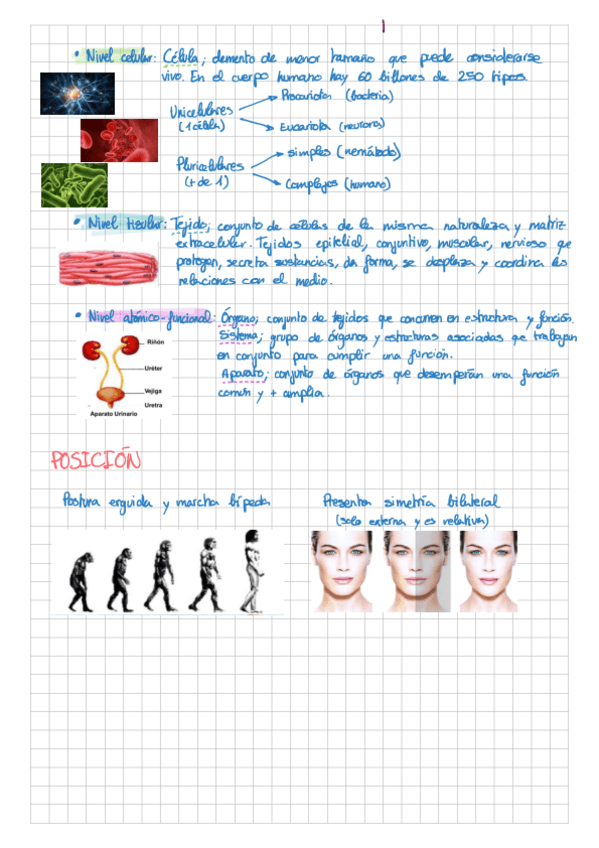 • Nivel celular: Célula; elemento de menor tamaño que puede considerarse
vivo. En el cuerpo humano hay 60 billones de 250 tipos.
Unicelulares
(1 célula)
Procariota (bacteria)
Eucariota (neurona)
Pluricelulares
(+ de 1)
simples (nemátodo)
Complejos (humano)
• Nivel tisular: Tejido; conjunto de células de la misma naturaleza y matriz
extracelular. Tejidos epitelial, conjuntivo, muscular, nervioso que
protegen, secreta sustancias, da forma, se desplaza y coordina las
relaciones con el medio.
• Nivel atómico-funcional: Órgano; conjunto de tejidos que concurren en estructura y función.
Sistema; grupo de órganos y estructuras asociadas que trabajan
en conjunto para cumplir una función.
Aparato; conjunto de órganos que desempeñan una función
común y + amplia.
Riñón
Uréter
Vejiga
Uretra
Aparato Urinario
POSICIÓN
Postura erguida y marcha bípeda
Presenta simetría bilateral
(solo externa y es relativa)